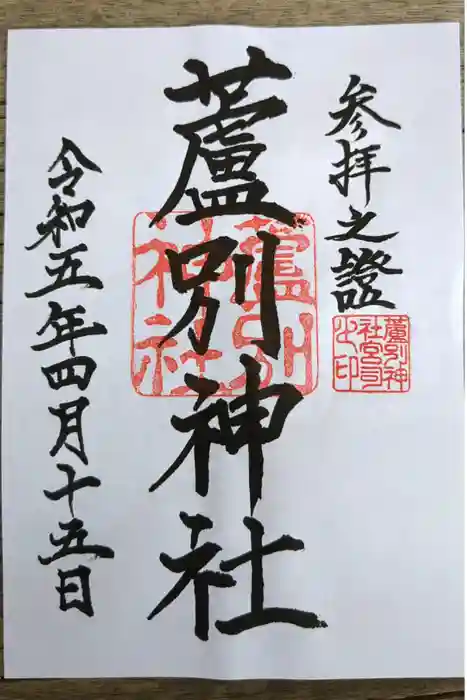 参拝之證
蘆別神社宮司之印
蘆別神社
蘆別神社
令和五年四月十五日